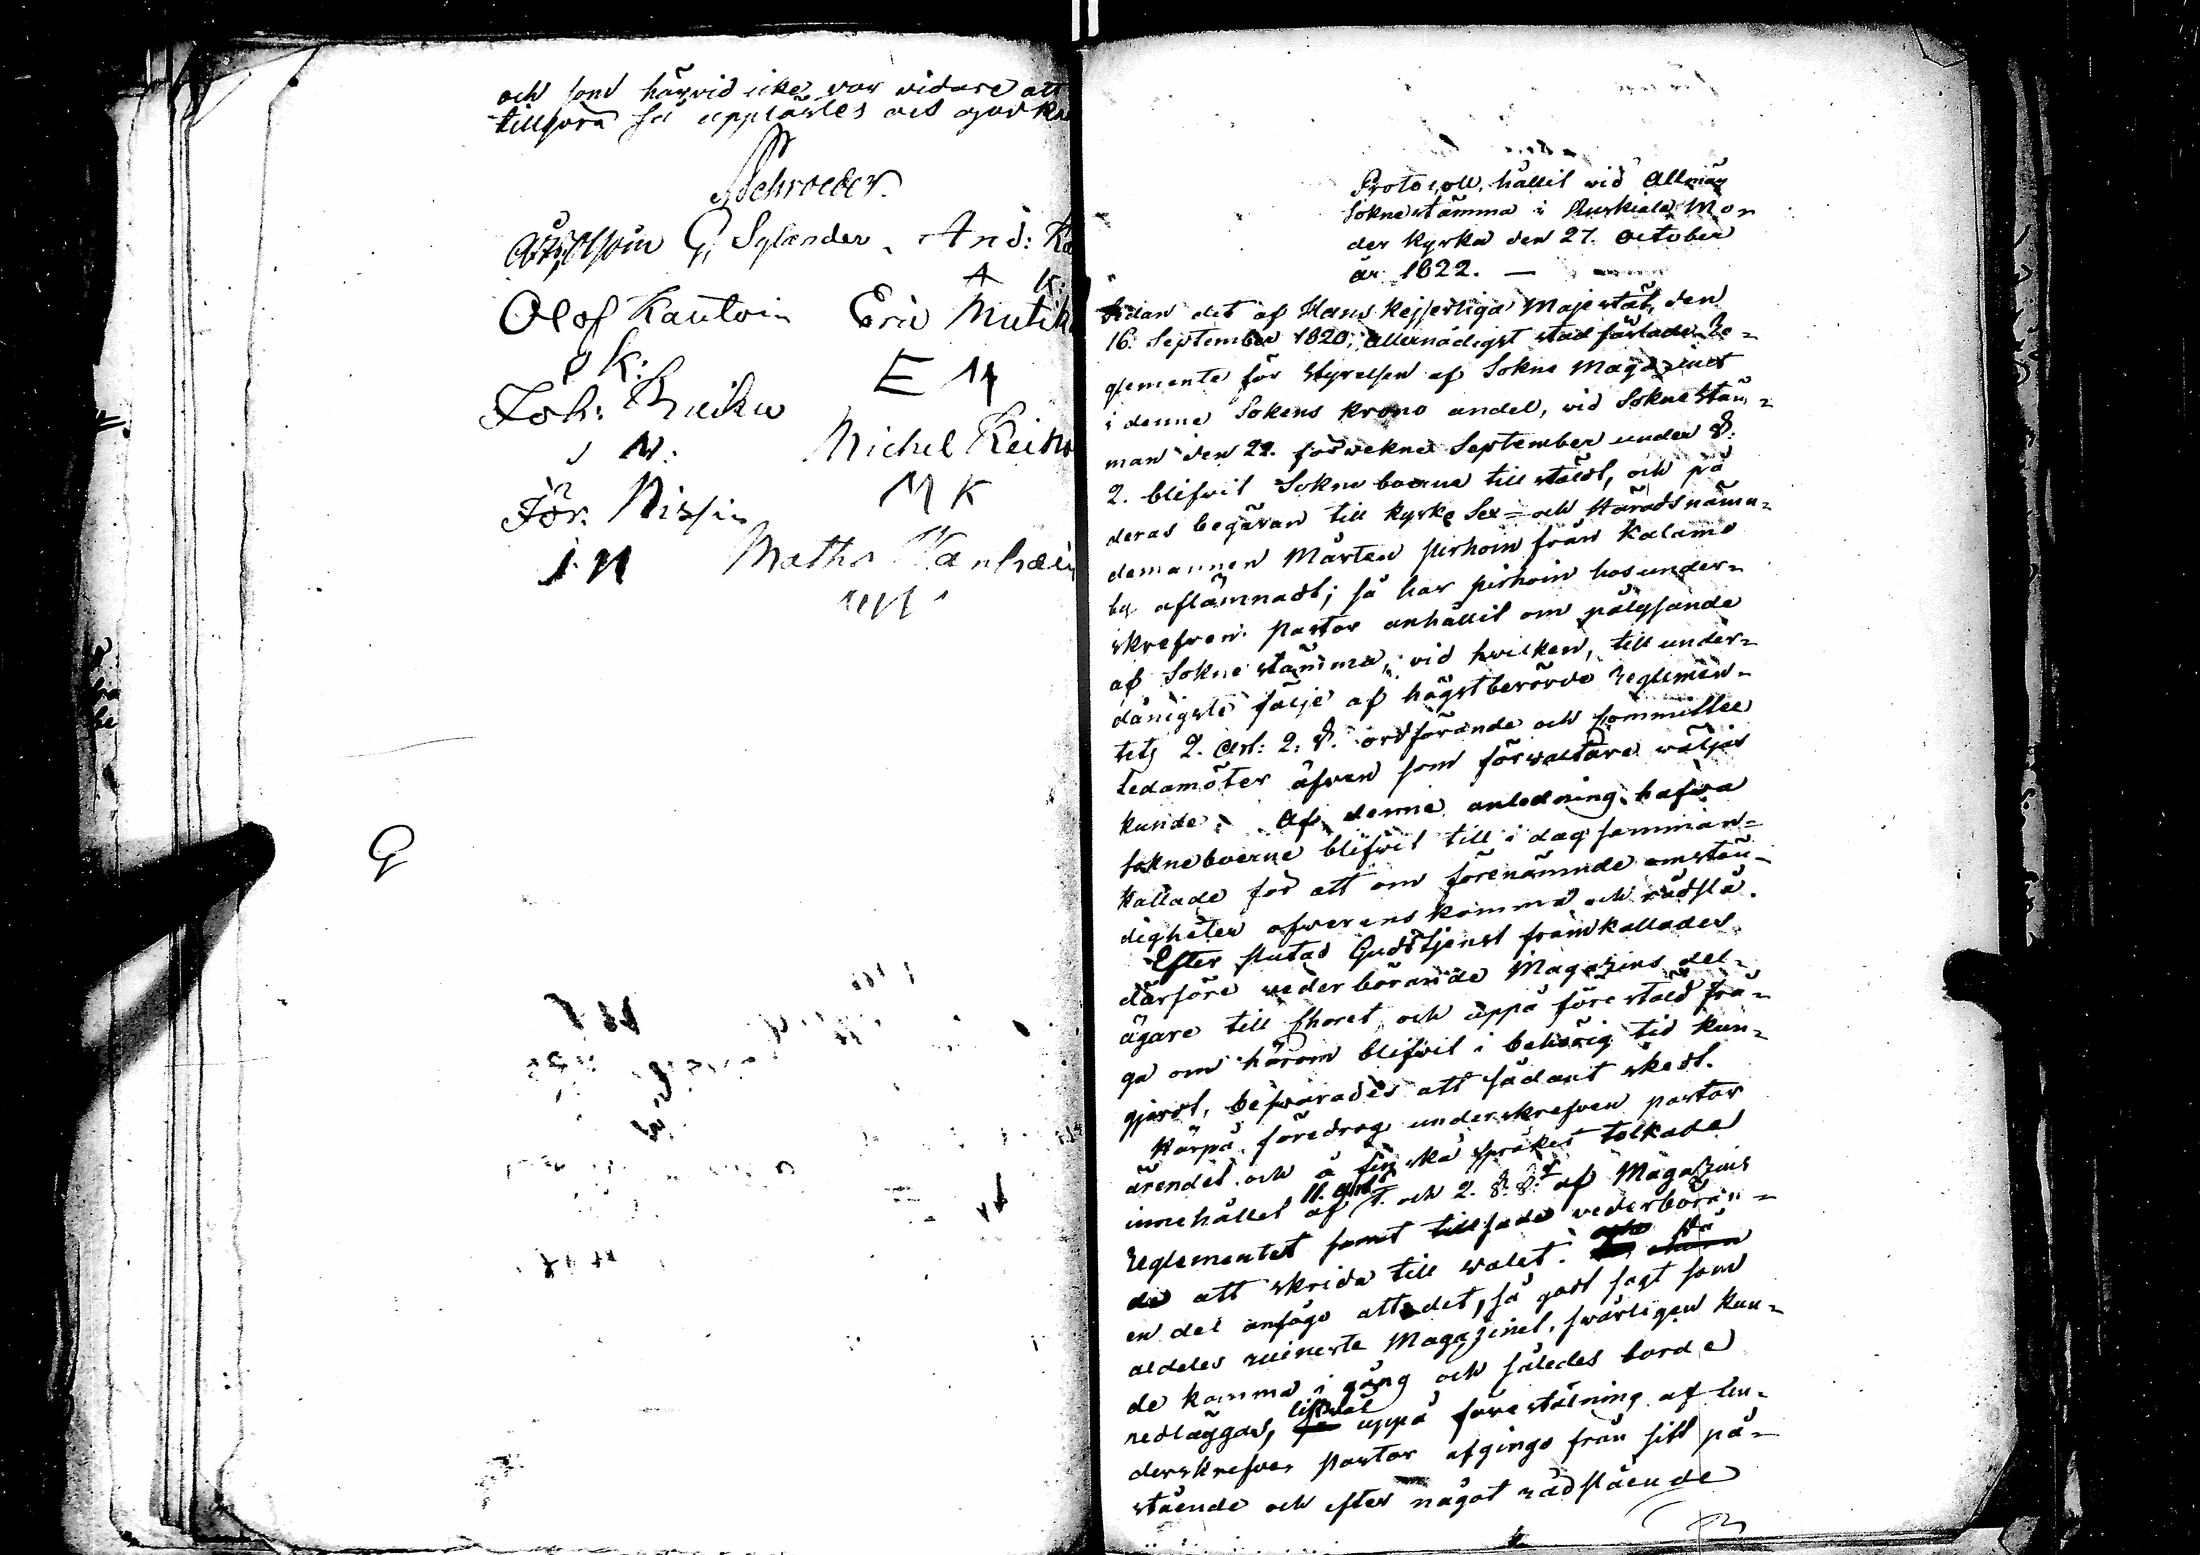 och som härvid icke var vidare att
tillgöra så upplästes och godk
Schroeder.
G, Sylander. And: K
A K:
Olof Kautoin Eric Mutik
O K:
E M
Joh:
J N: Michel Reiko
Jör. Nissin M K
J. N Maths
M
G
Protocoll, hållit wid Allmän
Soknestämma i Ruskiala Mo
der kyrka den 27. October
år 1822. —
Sedan det af Hans Kejserliga Majestät den
16. September 1820, allernådigst stadfästade Re=
glemente för Styrelsen af Sokne Magazinet
i denne Sokens krono andel, wid Soknestäm=
man den 22. förwekne September under §.
2. blifwit Sokneboerne tillstäldt, och på
deras begäran till kyrko Sex= och Häradsnämn=
demannen Mårten pirhoin från Kalamo
by aflämnadt; så har pirhoin hos under=
skrefwen pastor anhållit om pålysande
af Soknestämma, wid hwilken, till under=
dånigste följe af högstberörde Reglemen=
tetz 2. Art: 2. §. ordförande och Committee
Ledamöter äfwen som förwaltare wäljas
kunde. Af denne anledning hafwa
Sokneboerne blifwit till i dag samman=
kallade för att om förenämnde omstän=
digheter öfwerenskomma och rådslå.
Efter slutad Gudstjenst framkallades
därföre wederbörande Magazins del=
ägare till Choret och uppå förestäld frå=
ga om härom blifwit i behörig tid kun=
gjordt, beswarades att sådant skedt.
Härpå föredrog underskrefwen pastor
ärendet och å finska språket tolkade
innehållet af 11. Art. 1. och 2. §.§. af Magazins
Reglementet samt tillsade wederböran=
de att skrida till walet. Då
en del ansågo att det, så godt sagt som
aldeles ruinerte Magazinet, swårligen kun=
de komma i gång och således borde
nedläggas, likwäl uppå föreställning af Un=
derskrefwen pastor afgingo från sitt på=
stående och efter något rådslående